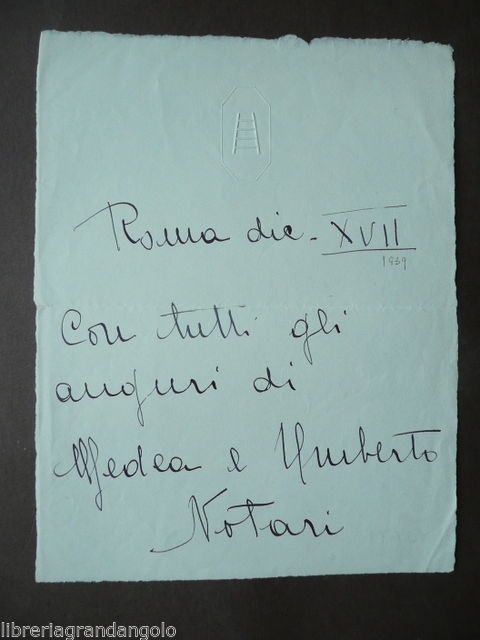 Roma dic - XVII
1939
Con tutti gli
auguri di
Medea e Umberto
Notari
libreriagrandangolo